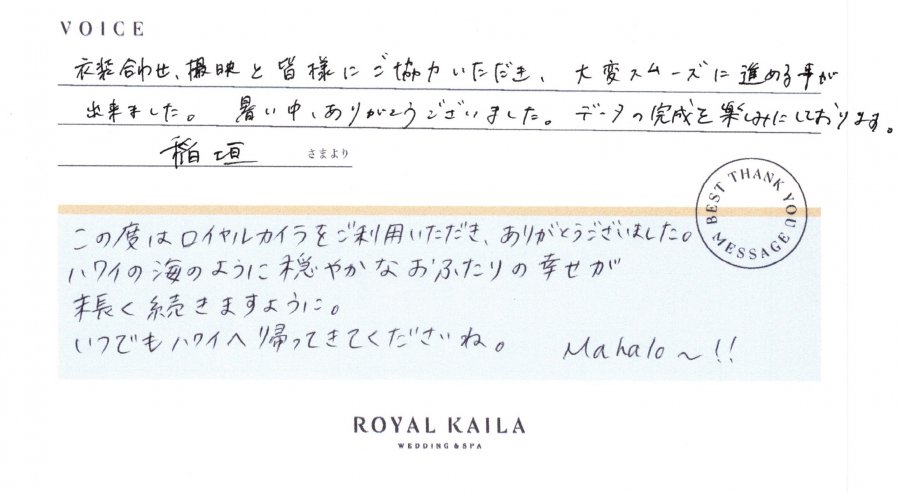 VOICE
衣装合わせ、撮映と皆様にご協力いただき、大変スムーズに進める事が
出来ました。暑い中、ありがとうございました。データの完成を楽しみにしております。
稲垣 さまより
BEST THANK YOU MESSAGE
この度はロイヤルカイラをご利用いただき、ありがとうございました。
ハワイの海のように穏やかなおふたりの幸せが
末長く続きますように。
いつでもハワイへ帰ってきてくださいね。 Mahalo~!!
ROYAL KAILA
WEDDING & SPA